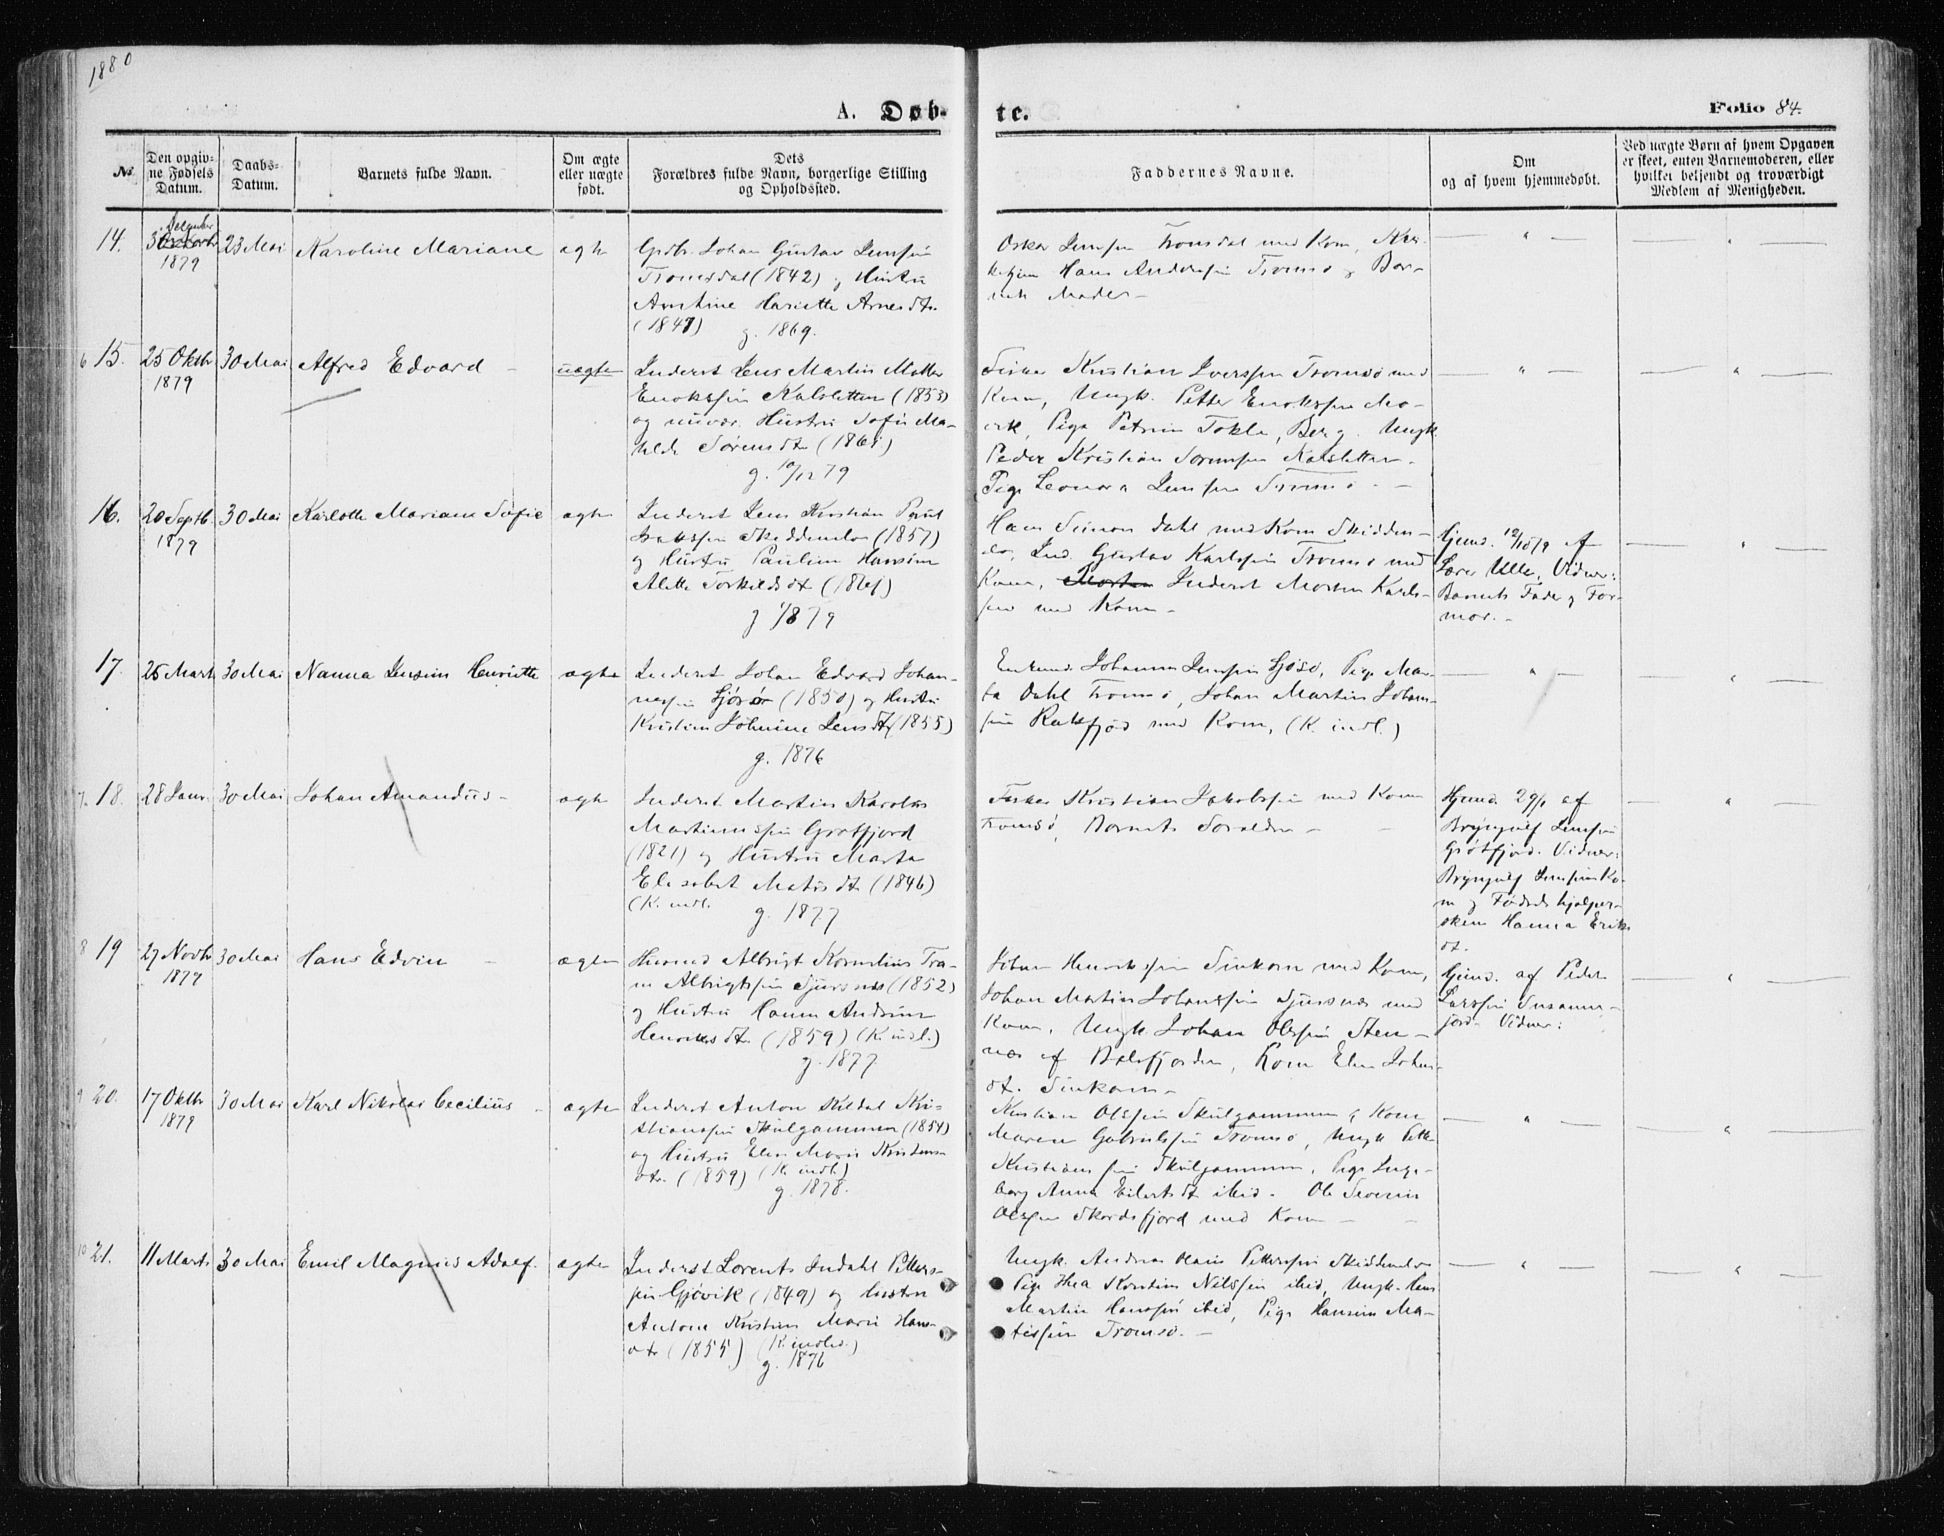 1880
A. Døbte.
Folio 84.
No.
Den opgivne Fødsels Datum.
Daabs-Datum.
Barnets fulde Navn.
Om ægte eller uægte født.
Dets Forældres fulde Navn, borgerlige Stilling og Opholdssted.
Faddernes Navne.
Om og af hvem hjemmedøbt.
Ved uægte Børn af hvem Opgaven er skeet, enten Barnemoderen, eller hvilket beljendt og troværdigt Medlem af Menigheden.
14. 1879 23 Mai Karoline Mariane ægte
Grdbr. Johan Gustav Jenssen
Tromsdal (1842) og Hustru
Hariette Arnesdtr.
(1847) g. 1869.
Oskar Jenssen Tromsdal med Kone,
Hans Anderssen Tromsø og Bar-
nets Moder -
6 15. 25 Oktbr 1879 30 Mai Alfred Edvard - uægte
Inderst Jens Martin
Enokssen Kalsletten (1853)
og nuvær. Hustru Sofie Ma-
thilde Sørensdtr (1861)
g. 10/12 79
Fisker Kristian Iverssen Tromsø med
Kone, Ungk. Petter Enokssen
Pige Petrine Tokle, Berg. Ungk.
Peder Kristian Sørenssen Kalsletten
Pige Leonora Jenssen Tromsø -
16. 20 Septb. 1879 30 Mai Karlotte Mariane Sofie ægte
Inderst Jens Kristian Paul
Skiddenelv (1857)
og Hustru Pauline Hansine
Alette Torkildsdtr (1861)
g 1879
Hans Simon Dahl med Kone Skidden-
elv, Ind. Gustav Karlssen Tromsø med
Kone, Morten Inderst Morten Karls-
sen med Kone -
Hjmd. af
Lærer Ulle, Vidner:
Barnets Fader og Far-
mor. -
17. 25 Marts 30 Mai Nanna Jensine Henriette ægte
Inderst Johan Edvard Johan-
nessen (1850) og Hustru
Kristine Johnine Jensdtr (1855)
g. 1876
Enkemd. Johannes Jenssen Pige Mar-
ta Dahl Tromsø, Johan Martin Johans-
sen Rakfjord med Kone, (K. indl.)
7. 18. 28 Janr. 30 Mai Johan Amandus - ægte
Inderst Martin Karolus
Martinussen Grøtfjord
(1821) og Hustru Marta
Elisabet Matisdtr (1846)
(K. indl. g. 1877
Fisker Kristian Jakobssen med Kone
Tromsø, Barnets Forældre -
Hjmd. 29/1 af
Brynjulf Jenssen
Grøtfjord. Vidner:
Brynjulf Jenssens Ko-
ne og Fødselshjælper-
sken Hanna Eriks
dt.
8 19 27 Novbr 1877 30 Mai Hans Edvin - ægte
Husmd Albrigt Kornelius
Albrigtssen Sjursnes (1852)
og Hustru Hanna Andrine
Henriksdtr (1859) (K. indl.)
g. 1877.
Johan Henrikssen Sinkaen med Kone,
Johan Martin Johanssen Sjursnes med
Kone, Ungk. Johan Olssen Sten-
næs af Balsfjorden, Kone Elen Johns
dt. Sinkaen -
Hjmd. af Peder
Larssen
Vidner:
9 20. 17 Oktbr 1879 30 Mai Karl Nikolai Cecilius - ægte
Inderst Anton Kildal Kri-
stianssen Skulgammen (1854)
og Hustru Elen Marie Kristens-
dtr. (1859) (K. indl.)
g. 1878.
Kristian Olssen Skulgammen og Kone
Maren Gabrielssen Tromsø, Ungk. Pette
Kristianssen Skulgammen, Pige Inge-
borg Anna Eilertsdt ibid. Ole Severin
Olssen Skordsfjord med Kone -
10 21. 11 Marts 30 Mai Emil Magnus Adolf. ægte
Inderst Lorents Indahl Petters-
sen Gjøvik (1849) og Hustru
Antone Kristine Marie Hans-
dtr (1855) (K. indled.)
g. 1876
Ungk. Andreas Olaus Petterssen Skiddenelv
Pige Thea Kerstine Nilssen ibid, Ungk. Hans
Martin Hanssen ibid, Pige Hansine Ma-
tissen Tromsø. -